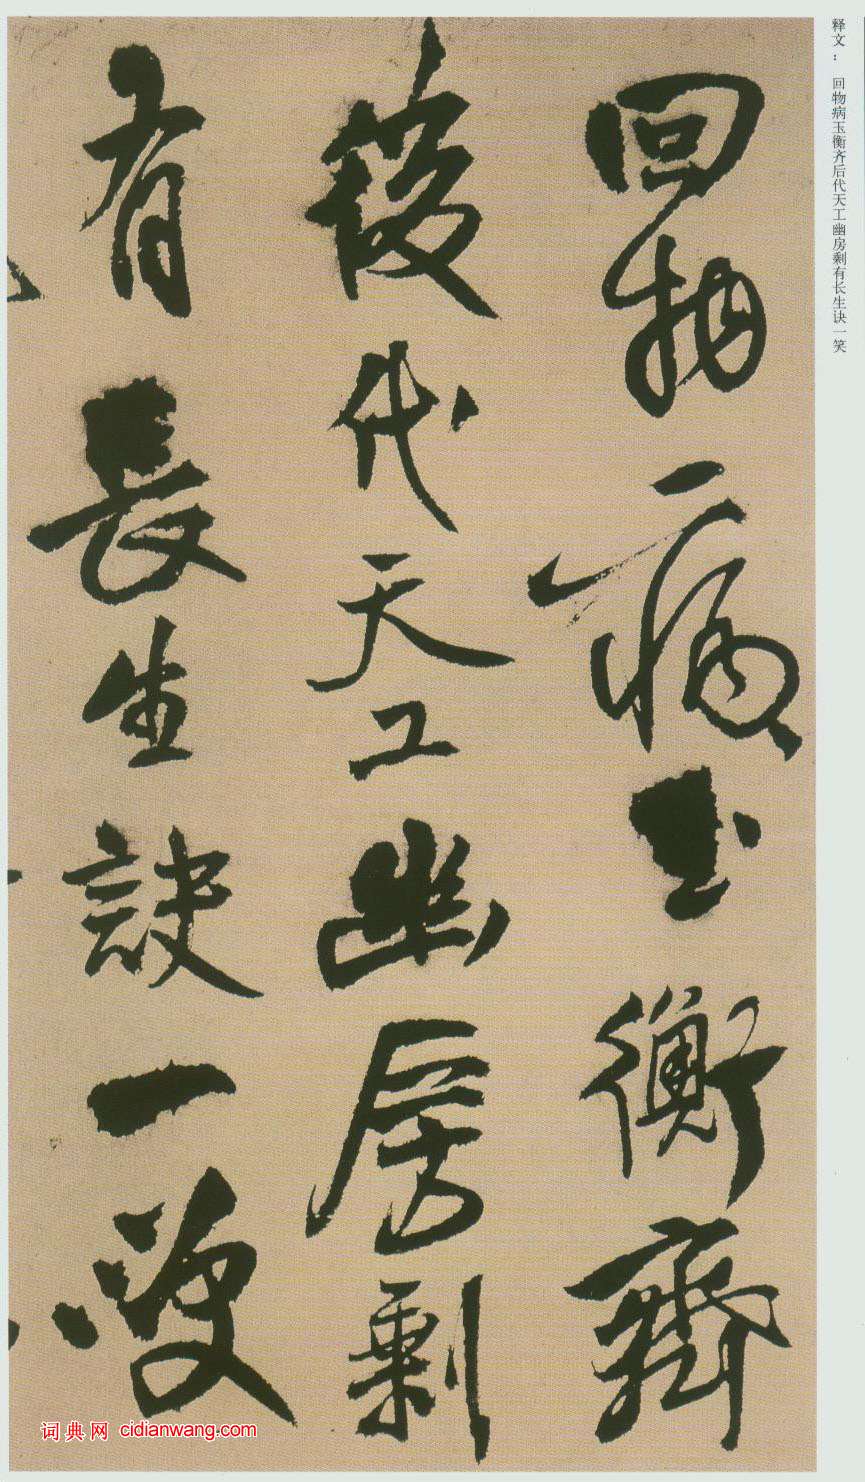 释文： 回物病玉衡齐后代天工幽房剩有长生诀一笑
回物病玉衡齊
後代天工幽房剩
有長生訣一笑
词典网 cidianwang.com